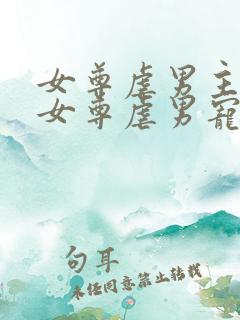 女尊虐男主
女尊虐男寵
句耳
未经同意禁止转载